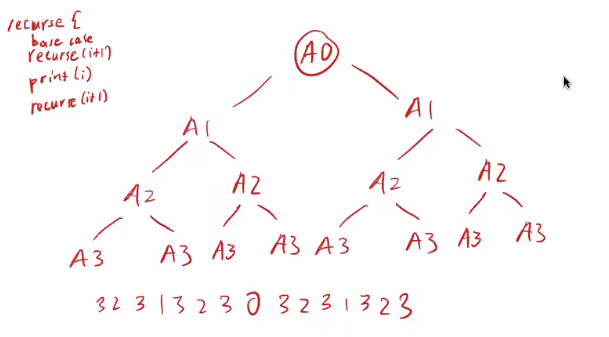 recurse {
base case
recurse(i+1)
print(i)
recurse(i+1)
A0
A1 A1
A2 A2 A2 A2
A3 A3 A3 A3 A3 A3 A3 A3
3 2 3 1 3 2 3 0 3 2 3 1 3 2 3